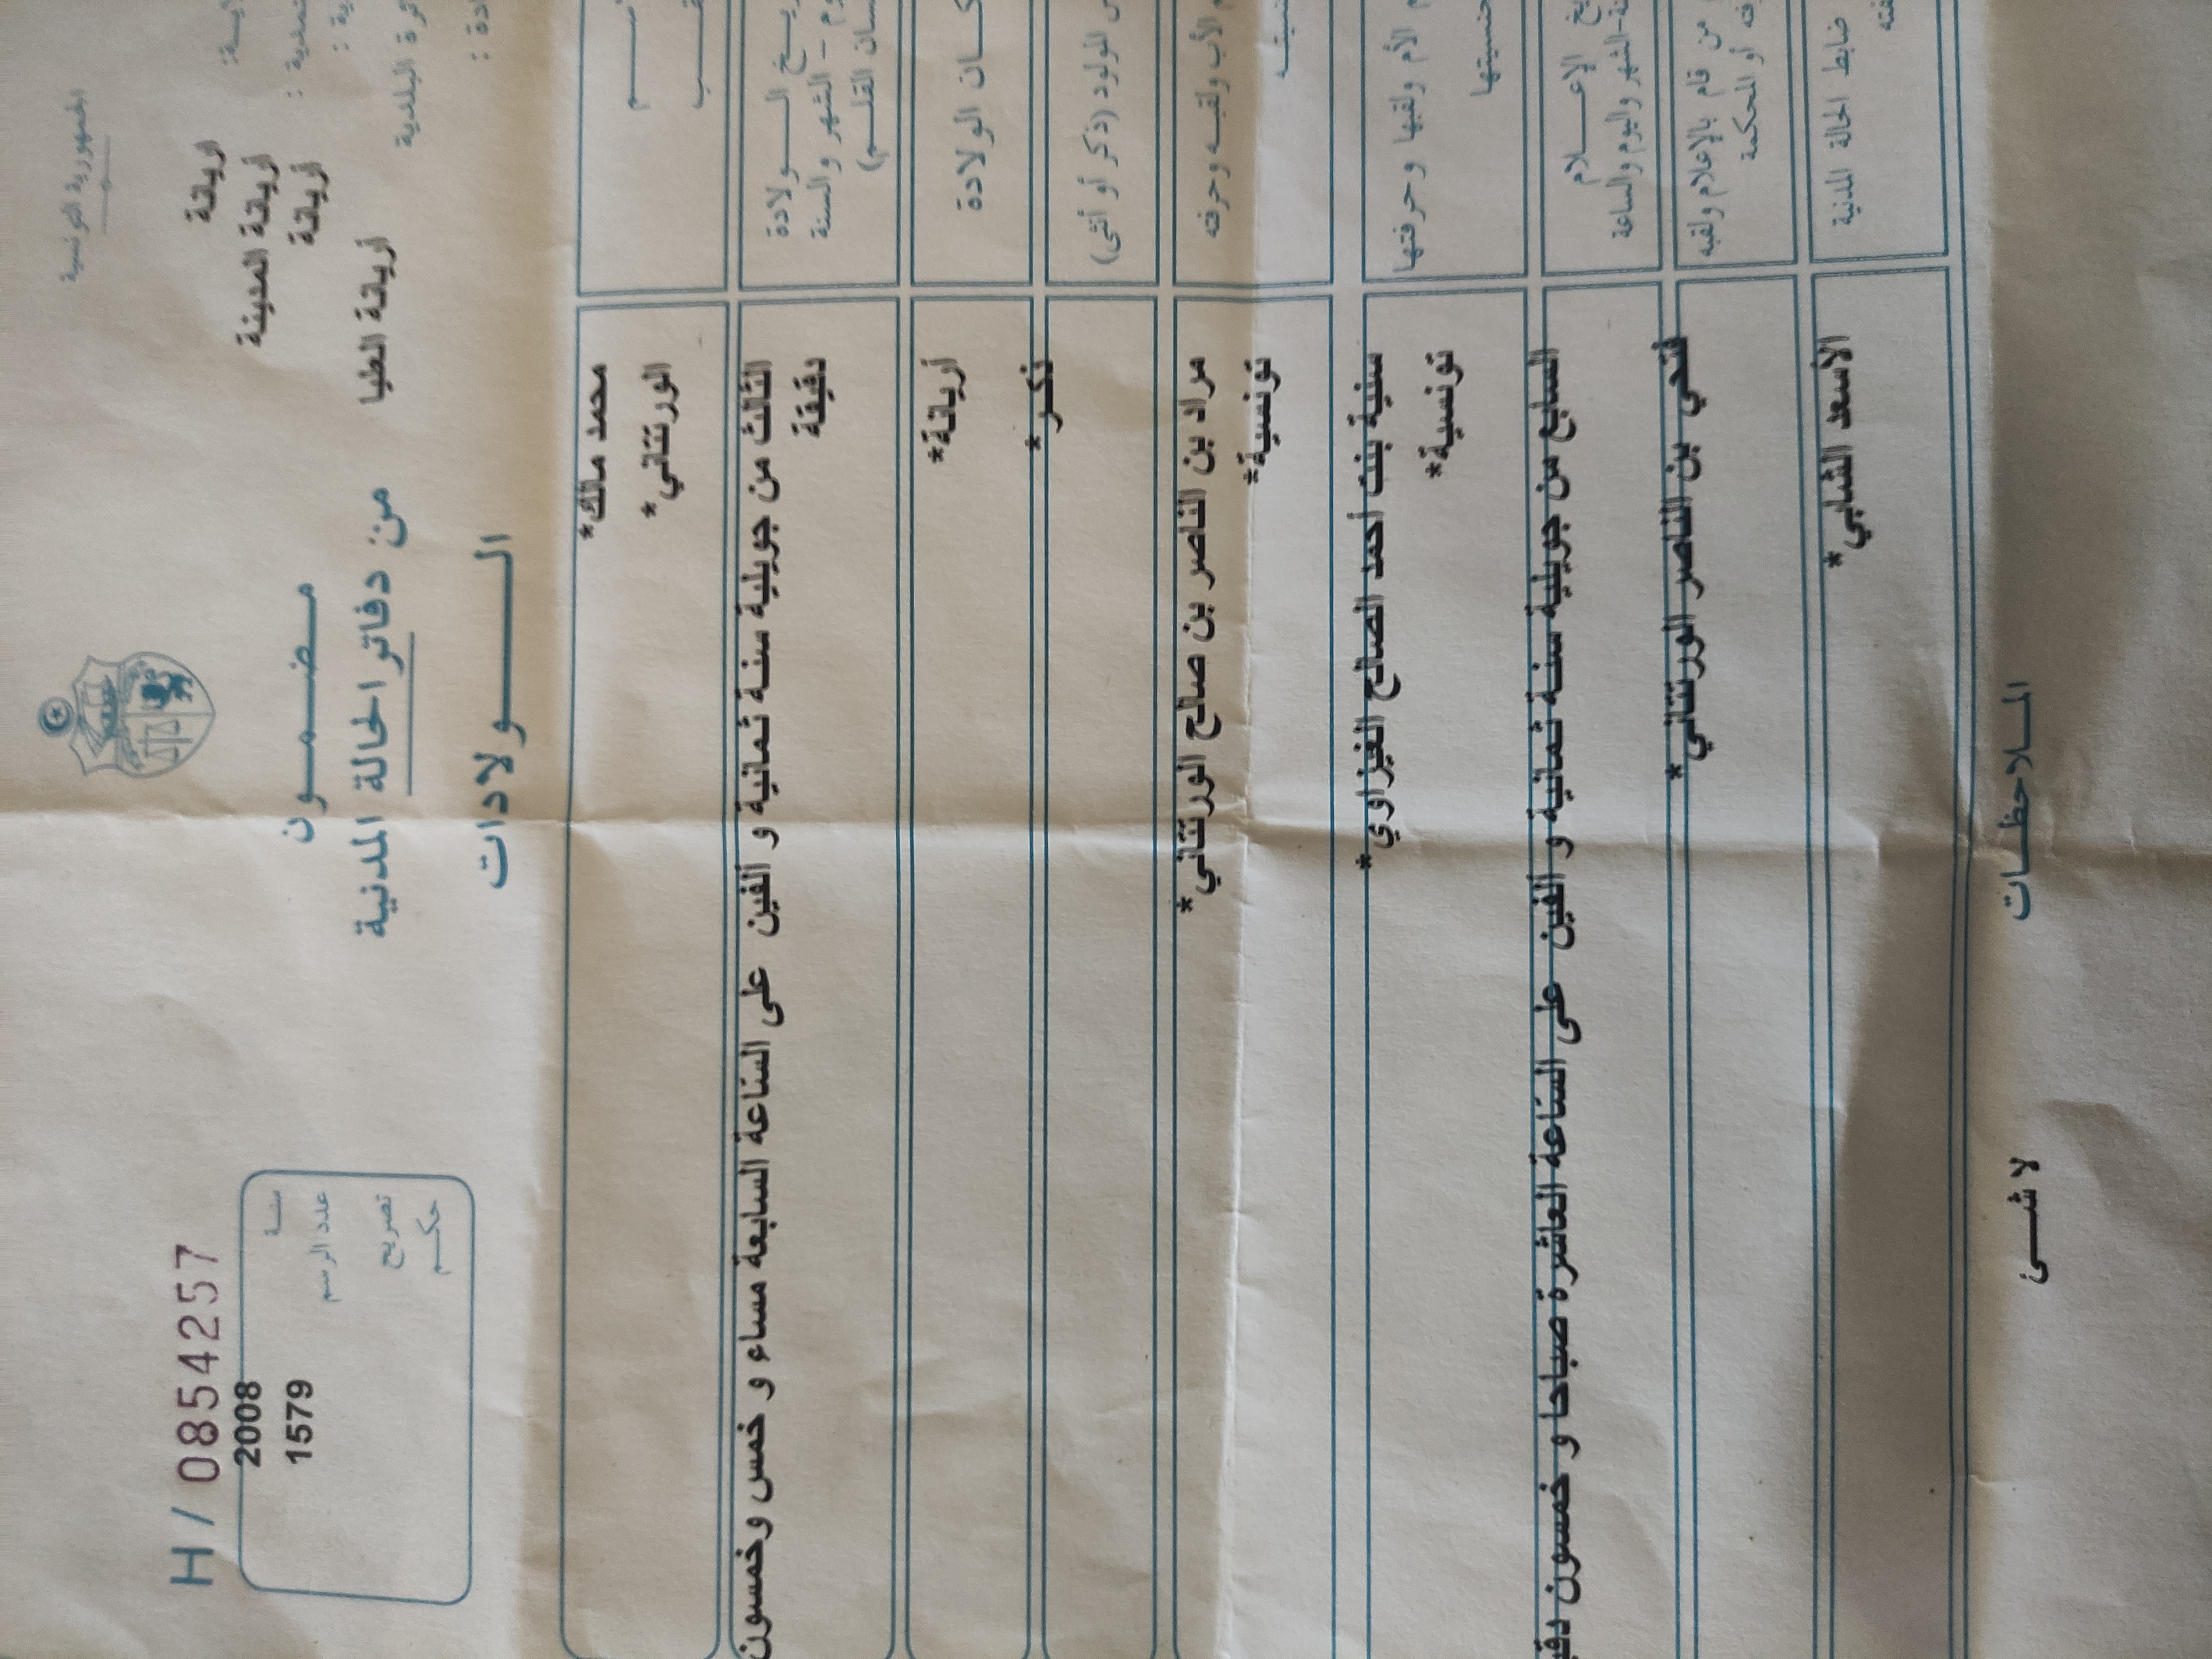 الجمهورية التونسية
أريانة
أريانة المدينة
أريانة
أريانة العليا
H / 0854257
سنة 2008
عدد الرسم 1579
تصريح
حكم
مضمون
من دفاتر الحالة المدنية
الولادات
محمد مالك*
الورتتاني*
الولادة
الثالث من جويلية سنة ثمانية و ألفين على الساعة السابعة مساء و خمس وخمسون
والشهر والسنة
دقيقة
الولادة أريانة*
المولود (ذكر أو أنثى) ذكر*
الأب ولقبه وحرفته مراد بن الناصر بن صالح الورتتاني*
تونسية*
الأم ولقبها وحرفتها سنية بنت أحمد الصالح الغيزاوي*
جنسيتها تونسية*
الإعلام
السابع من جويلية سنة ثمانية و ألفين على الساعة العاشرة صباحا و خمسون
الشهر واليوم والساعة
من قام بالإعلام ولقبه فتحي بن الناصر الورتتاني*
أو المحكمة
ضابط الحالة المدنية الأسعد الشابي*
الملاحظات
لا شئ